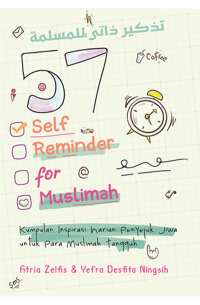 تذكير ذاتي للمسلمة
57
Coffee
Self
Reminder
for
Muslimah
Kumpulan Inspirasi Harian Penyejuk Jiwa
untuk Para Muslimah Tangguh
Fitria Zelfis & Yefra Desfita Ningsih